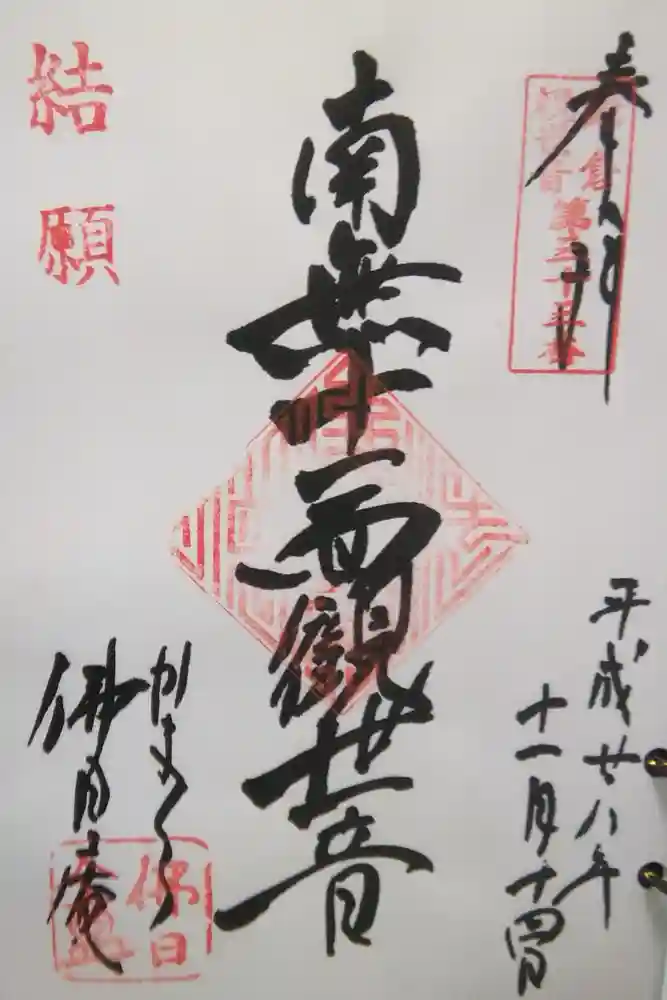 奉拝
鎌倉
観世音
第三十三番
平成廿八年
十一月十四日
南無十一面観世音
結願
かまくら
佛日庵
佛日